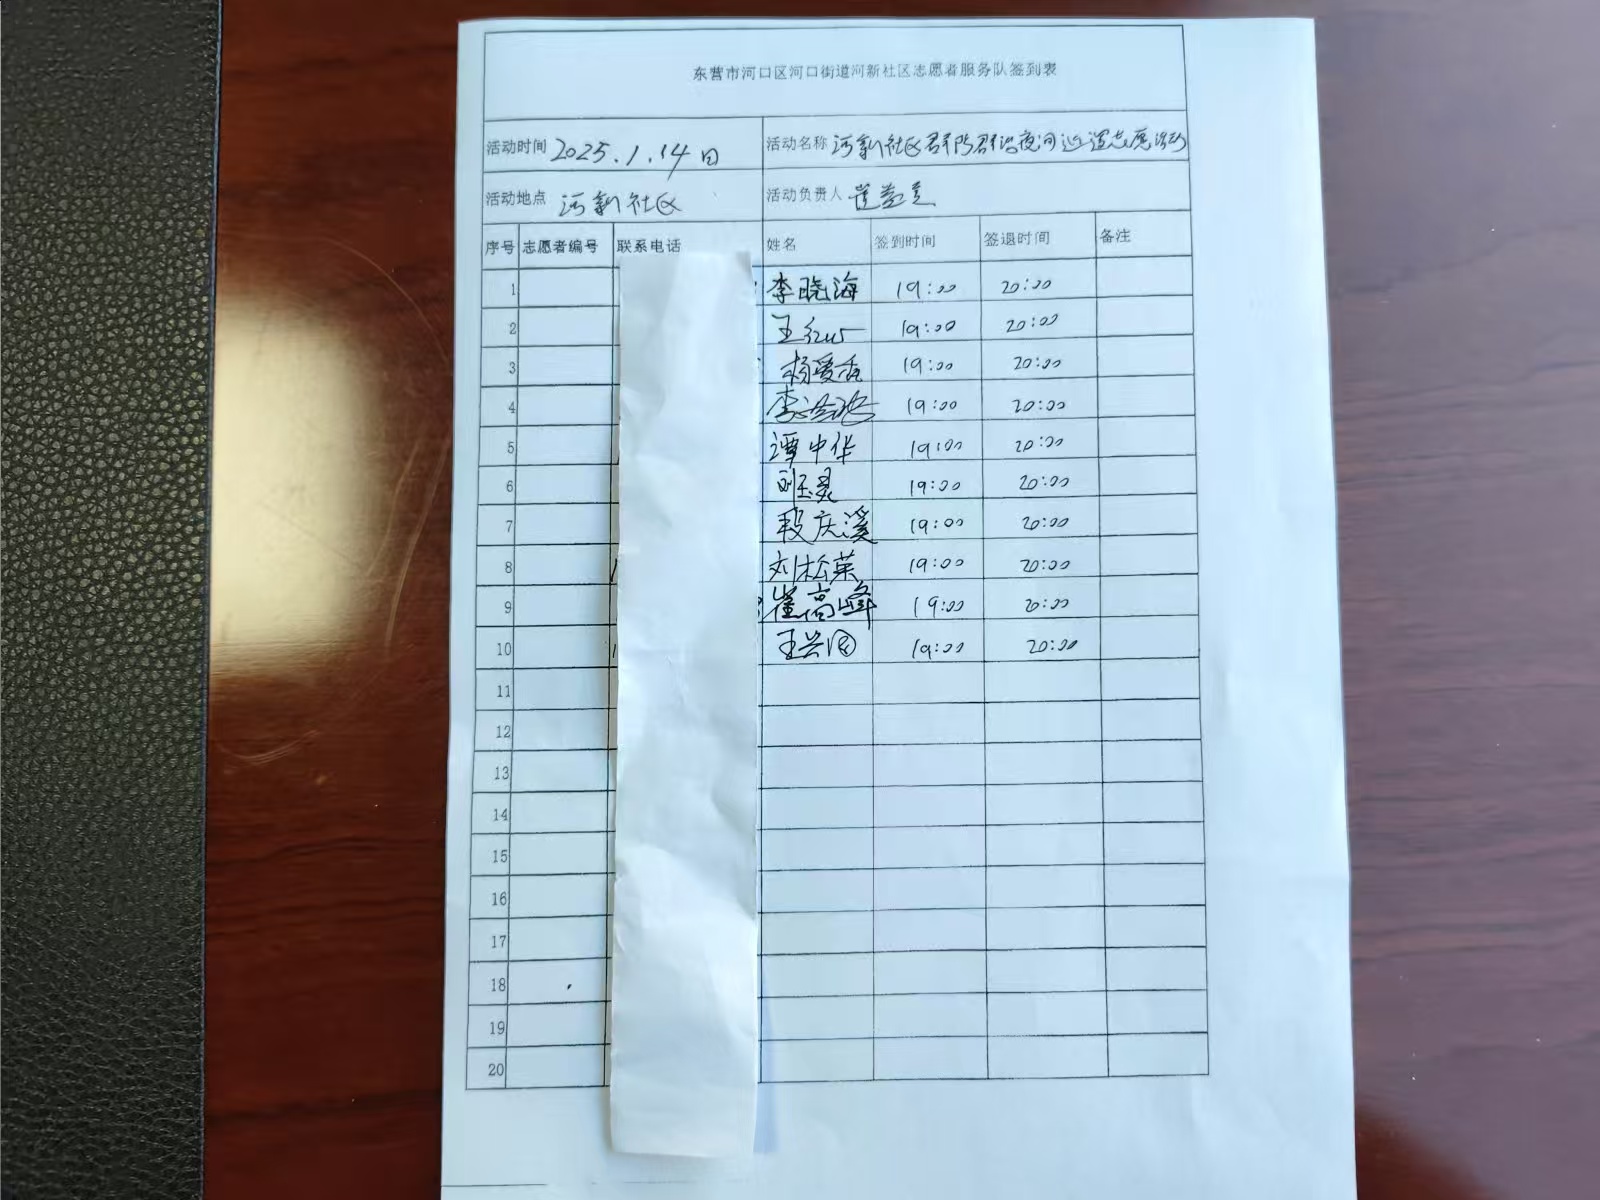 东营市河口区河口街道河新社区志愿者服务队签到表
活动时间 2025.1.14日 活动名称 河新社区群防群治夜间巡逻志愿活动
活动地点 河新社区 活动负责人
序号 志愿者编号 联系电话 姓名 签到时间 签退时间 备注
1 李晓海 19:00 20:00
2 19:00 20:00
3 杨爱香 19:00 20:00
4 19:00 20:00
5 谭中华 19:00 20:00
6 19:00 20:00
7 段庆溪 19:00 20:00
8 刘松荣 19:00 20:00
9 崔高峰 19:00 20:00
10 王兴国 19:00 20:00
11
12
13
14
15
16
17
18
19
20